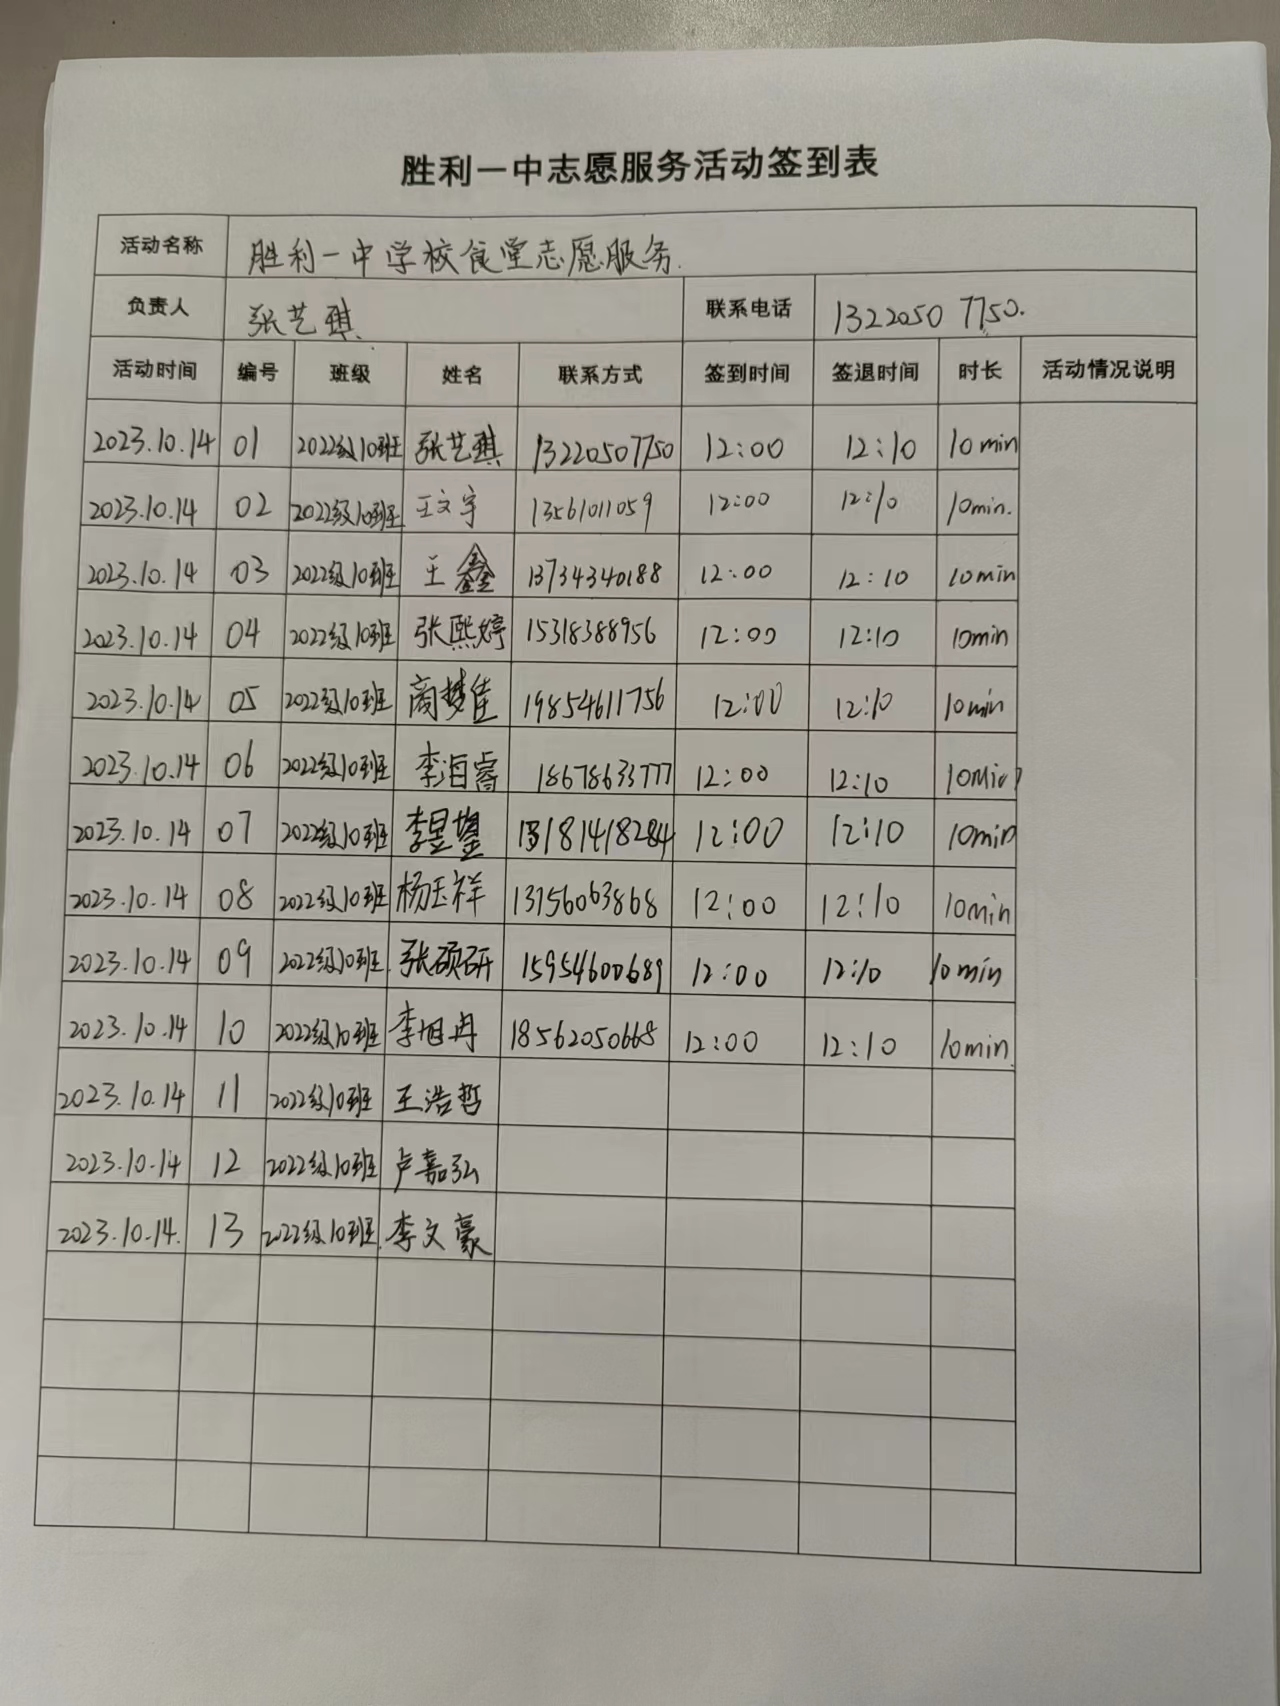 胜利一中志愿服务活动签到表
活动名称 胜利一中学校食堂志愿服务.
负责人 张艺琪 联系电话 13220507750.
活动时间 编号 班级 姓名 联系方式 签到时间 签退时间 时长 活动情况说明
2023.10.14 01 2022级10班 张艺琪 13220507750 12:00 12:10 10min
2023.10.14 02 2022级10班 王文宇 13561011059 12:00 12:10 10min.
2023.10.14 03 2022级10班 王鑫 13734340188 12:00 12:10 10min
2023.10.14 04 2022级10班 张熙婷 15318388956 12:00 12:10 10min
2023.10.14 05 2022级10班 商梦佳 19854611756 12:00 12:10 10min
2023.10.14 06 2022级10班 李海睿 18678633777 12:00 12:10 10min
2023.10.14 07 2022级10班 李昱 13181418284 12:00 12:10 10min
2023.10.14 08 2022级10班 杨玉祥 13756063868 12:00 12:10 10min
2023.10.14 09 2022级10班 张硕研 15954600689 12:00 12:10 10min
2023.10.14 10 2022级10班 李旭冉 18562050668 12:00 12:10 10min.
2023.10.14 11 2022级10班 王浩哲
2023.10.14 12 2022级10班 卢嘉弘
2023.10.14. 13 2022级10班 李文豪